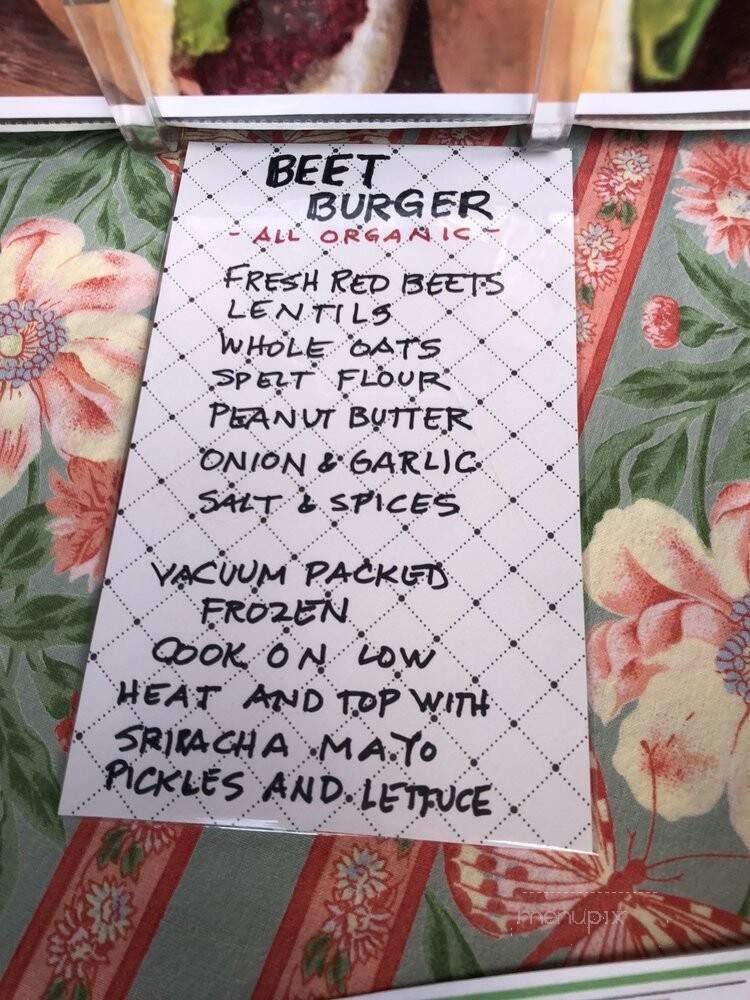 BEET
BURGER
- ALL ORGANIC -
FRESH RED BEETS
LENTILS
WHOLE OATS
SPELT FLOUR
PEANUT BUTTER
ONION & GARLIC
SALT & SPICES
VACUUM PACKED
FROZEN
COOK ON LOW
HEAT AND TOP WITH
SRIRACHA MAYO
PICKLES AND LETTUCE
menupix